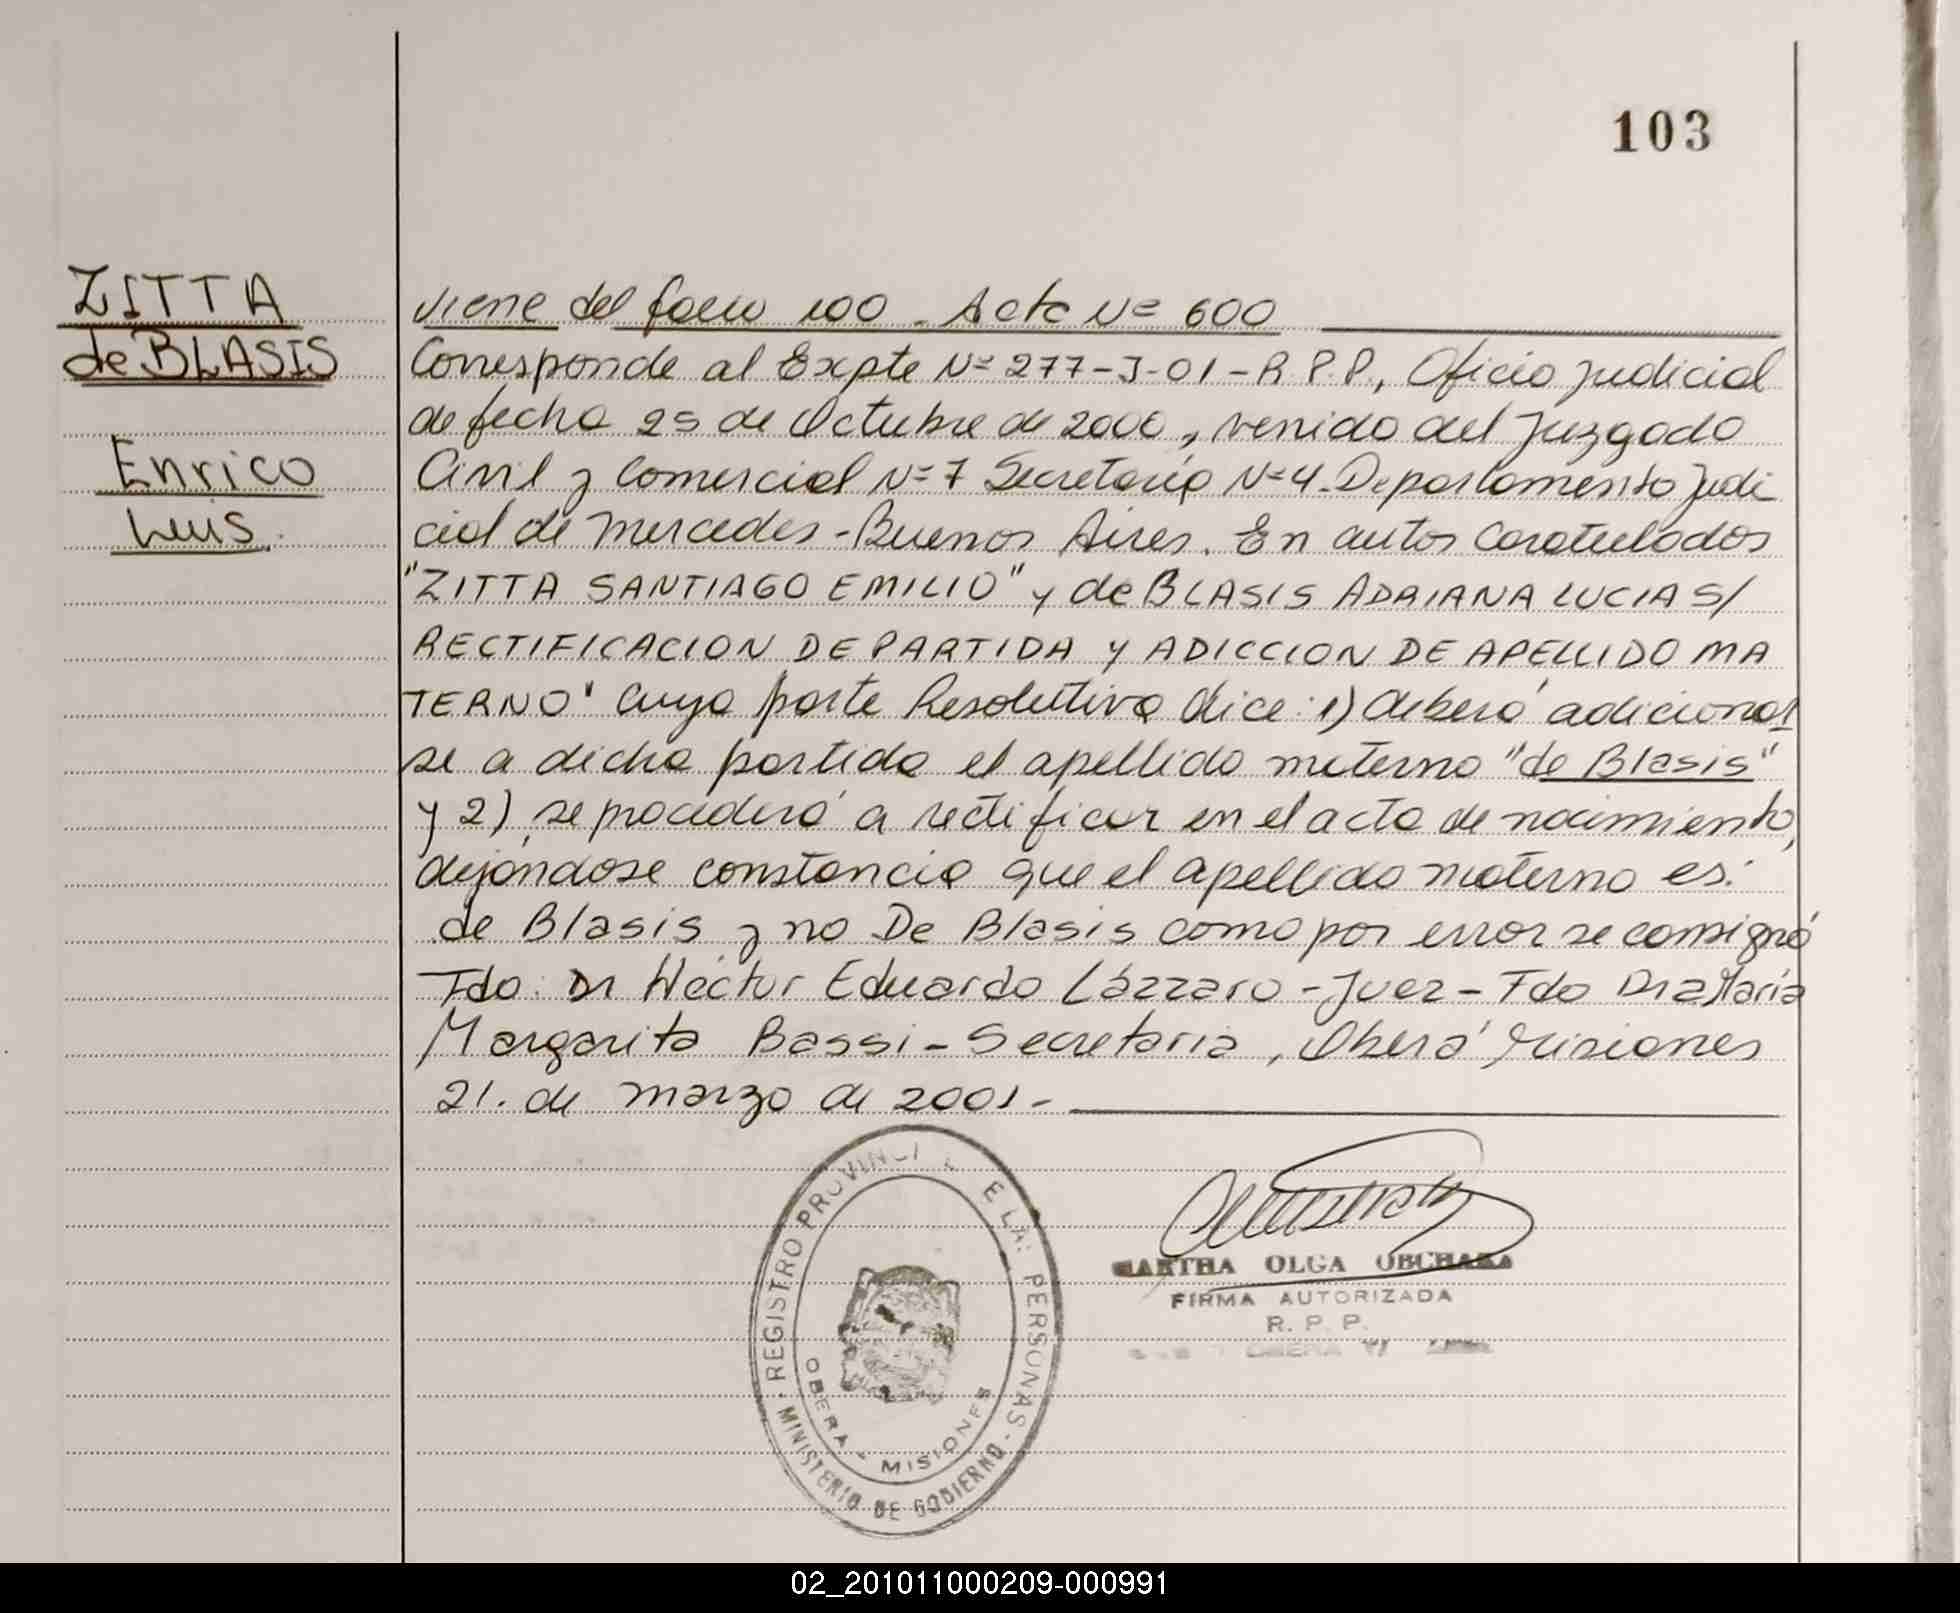 103
ZITTA
de BLASIS
Enrico
Luis.
viene del folio 100 - Acta Nº 600
Corresponde al Expte Nº 277-J-01-R.P.P., Oficio judicial
de fecha 25 de Octubre de 2000, venido del Juzgado
Civil y Comercial Nº 7 Secretaria Nº 4 - Departamento Judi
cial de Mercedes - Buenos Aires. En autos Caratulados
"ZITTA SANTIAGO EMILIO" y de BLASIS ADRIANA LUCIA S/
RECTIFICACION DE PARTIDA Y ADICCION DE APELLIDO MA
TERNO" cuya parte Resolutiva dice: 1) deberá adicionar
se a dicha partida el apellido materno "de Blasis"
y 2) se procederá a rectificar en el acta de nacimiento,
dejándose constancia que el apellido materno es:
de Blasis y no De Blasis como por error se consignó
Fdo: Dr Héctor Eduardo Lázzaro - Juez - Fdo Dra María
Margarita Bassi - Secretaria, Oberá Misiones
21. de marzo de 2001 -
REGISTRO PROVINCI E LA: PERSONAS
OBERA - MISIONES
MINISTERIO DE GOBIERNO
MARTHA OLGA OBCHARA
FIRMA AUTORIZADA
R. P. P.
OBERA
02_201011000209-000991